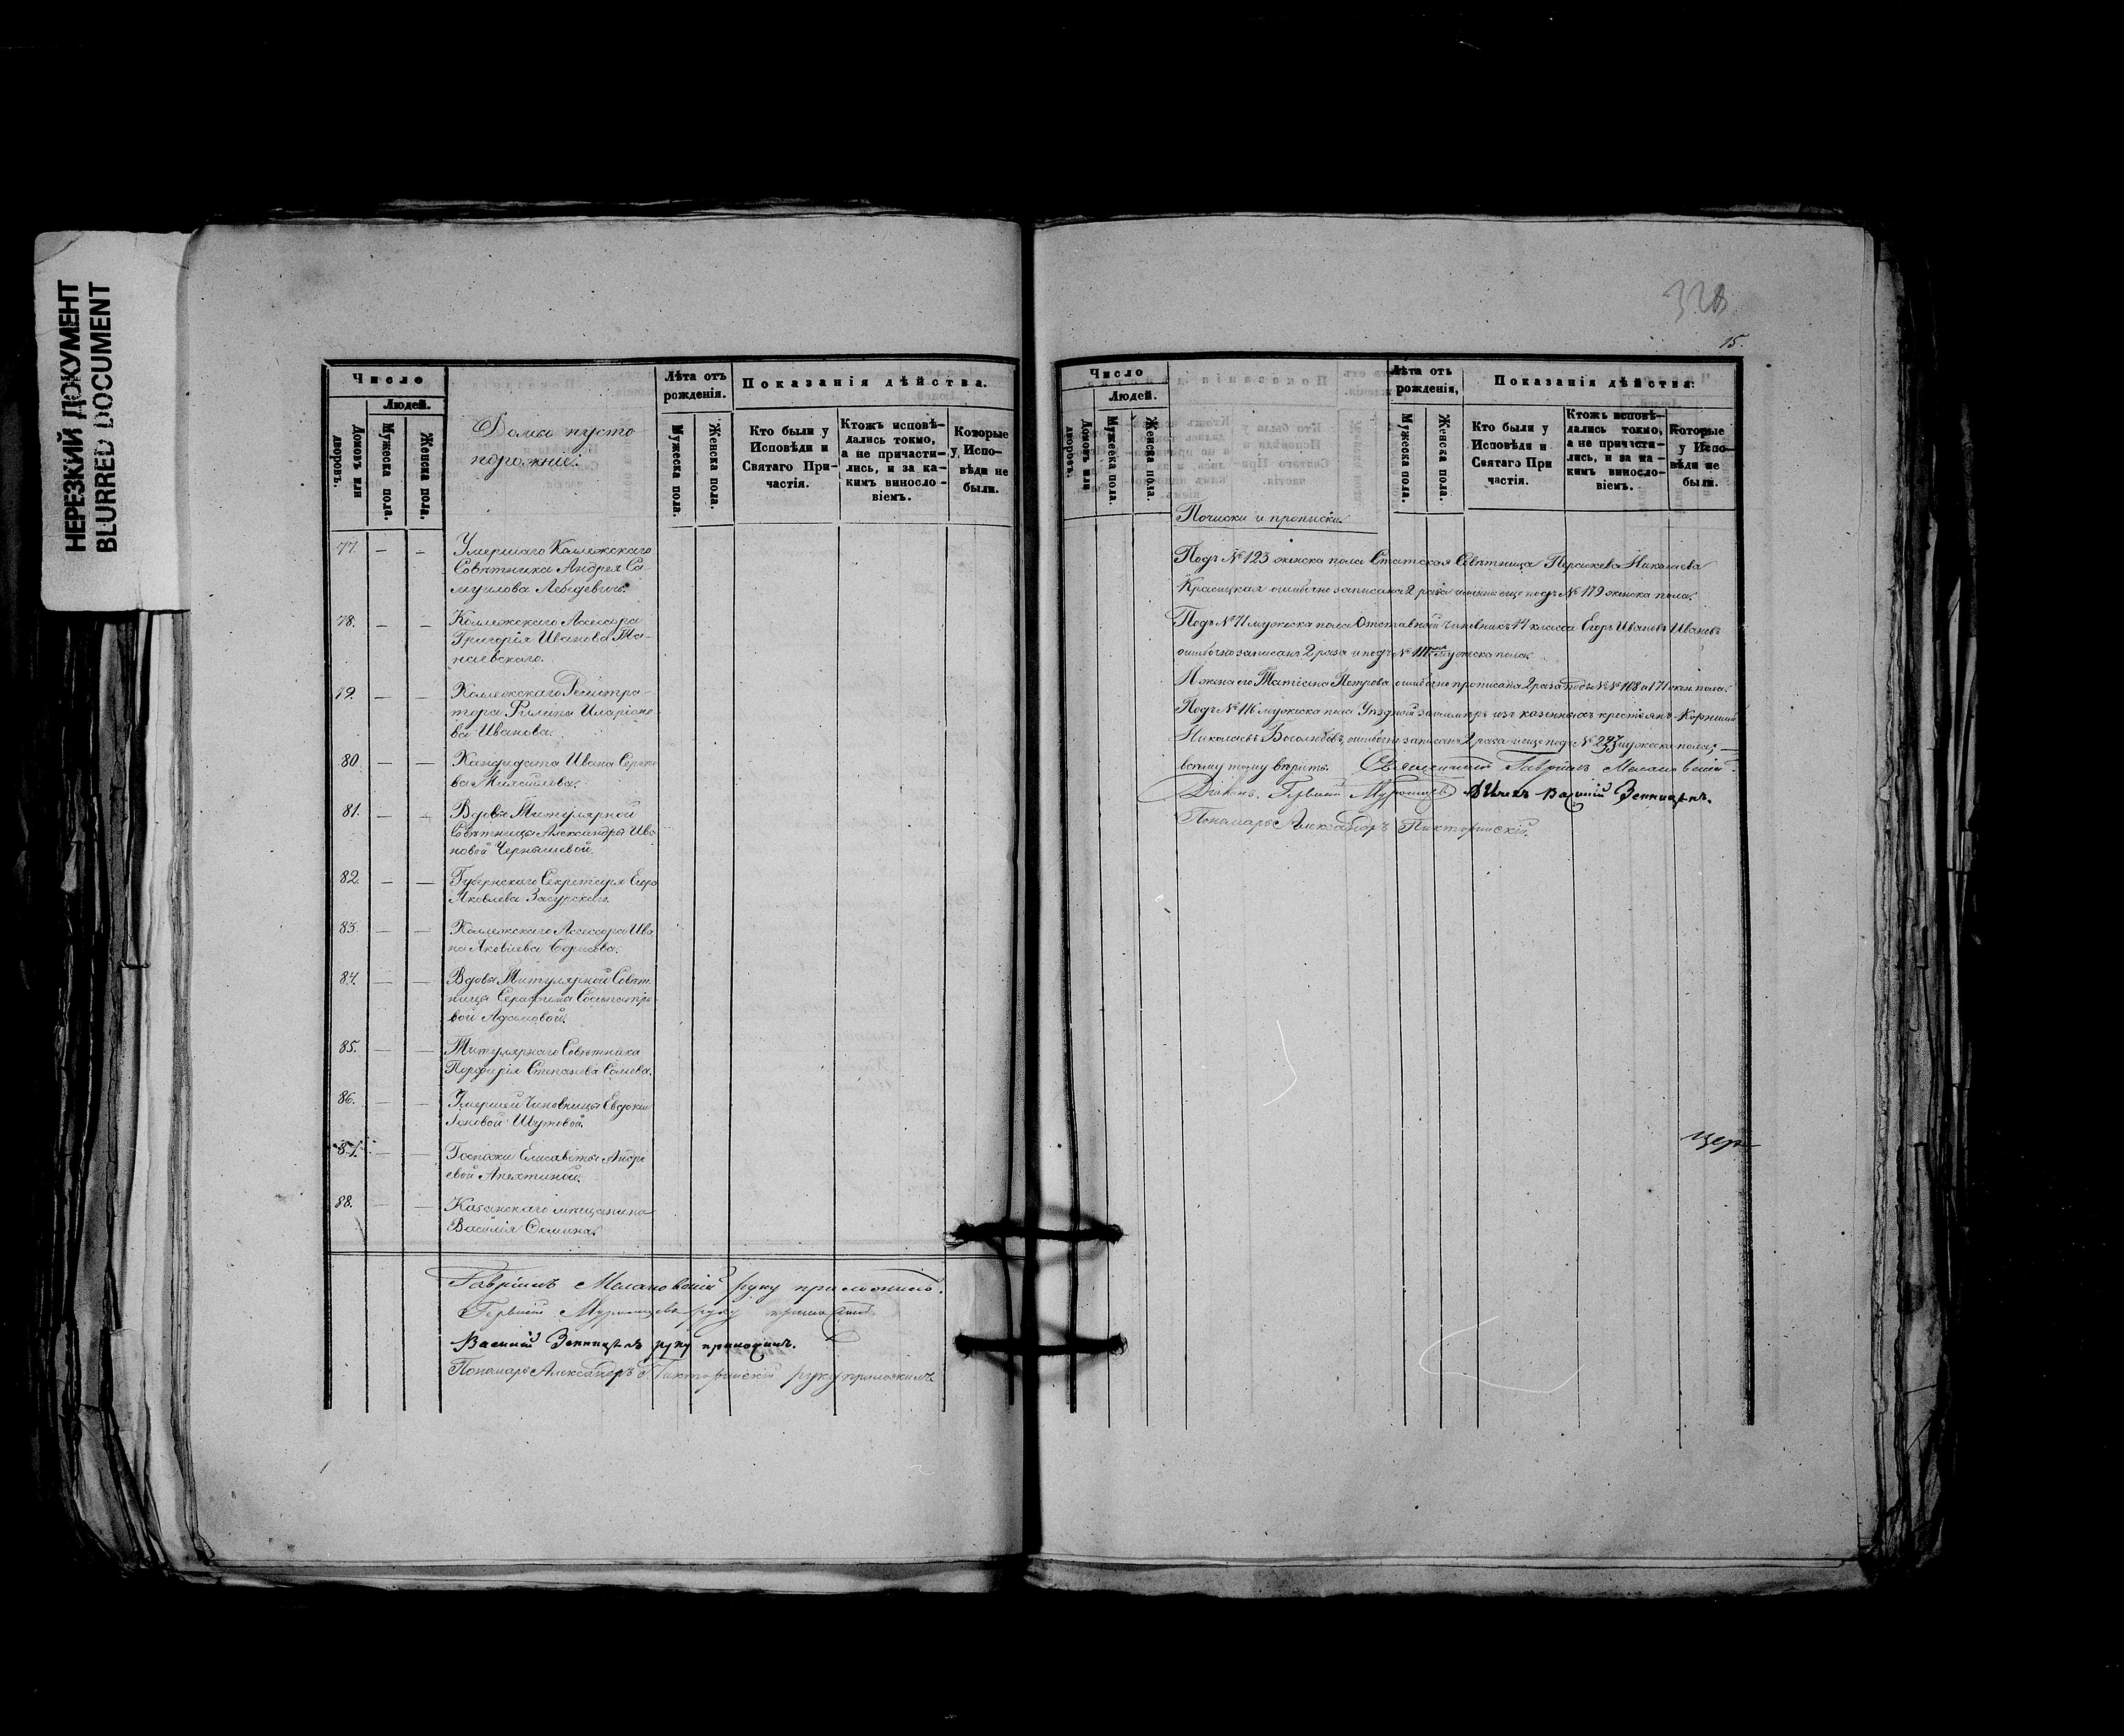 НЕРЕЗКИЙ ДОКУМЕНТ
BLURRED DOCUMENT
Число
Людей.
Домовъ или дворовъ.
Мужеска пола.
Женска пола.
Домы пусто
порожніе.
Лѣта отъ
рожденія.
Мужеска пола.
Женска пола.
Показанія дѣйства.
Кто были у
Исповѣди и
Святаго При-
частія.
Ктожъ исповѣ-
дались токмо,
а не причасти-
лись, и за ка-
кимъ винросло-
віемъ.
Которые
у Испо-
вѣди не
были.
77. — — Умершаго Коллежскаго
Совѣтника Андрея Са-
муилова Лебедевича.
78. — — Коллежскаго Ассесора
Григорія Иванова Та-
наевскаго.
79. — — Коллежскаго Регистра-
тора Филипа Иларіоно-
ва Иванова.
80 — — Кандидата Ивана Сергѣе-
ва Михайлова.
81. — — Вдовы Титулярной
Совѣтницы Александры Ива
новой Чернышевой.
82. — — Губернскаго Секретаря Егора
Яковлева Засурскаго.
83. — — Коллежскаго Ассесора Ива
на Яковлева Борисова.
84. — — Вдовы Титулярной Совѣт
ницы Серафимы
вой Адамовой.
85. — — Титулярнаго Совѣтника
Порфирія Степанова Сомова.
86. — — Умершей Чиновницы Евдокіи
Шутовой.
87. — — Госпожи Елисаветы Андре
евой Апехтиной.
88. — — Казанскаго мѣщанина
Василія Фомина.
Гавріилъ Мелановскій руку приложилъ.
руку приложилъ
Василій руку приложилъ.
Пономарь Александръ Пиктор​инскій руку приложилъ
328
15.
Число
Людей.
Домовъ или дворовъ.
Мужеска пола.
Женска пола.
Лѣта отъ
рожденія,
Мужеска пола.
Женска пола.
Показанія дѣйства:
Кто были у
Исповѣди и
Святаго При
частія.
Ктожъ исповѣ-
дались токмо,
а не причасти-
лись, и за ка-
кимъ винросло-
віемъ.
Которые
у Испо-
вѣди не
были.
Почиски и прописки.
Подъ № 123 женска пола Статская Совѣтница Парасковья Николаева
Красицкая ошибочно записана 2 раза именно еще подъ № 179 женска пола.
Подъ № 71 мужеска пола Отставной чиновникъ 14 класса Егоръ Ивановъ Ивановъ
ошибочно записанъ 2 раза и подъ № 111 мужеска пола.
А жена его Татіана Петрова ошибочно прописана 2 раза подъ №№ 108 и 171 жен. пола.
Подъ № 116 мужеска пола Уѣздной землемѣръ изъ казенныхъ крестьянъ Корнилій
Николаевъ Боголюбовъ, ошибочно записанъ 2 раза и еще подъ № 227 мужеска пола; —
всему тому вѣрить. Священникъ Гавріилъ Мелановскій.
Діаконъ Дьячекъ Василій
Пономарь Александръ
цер